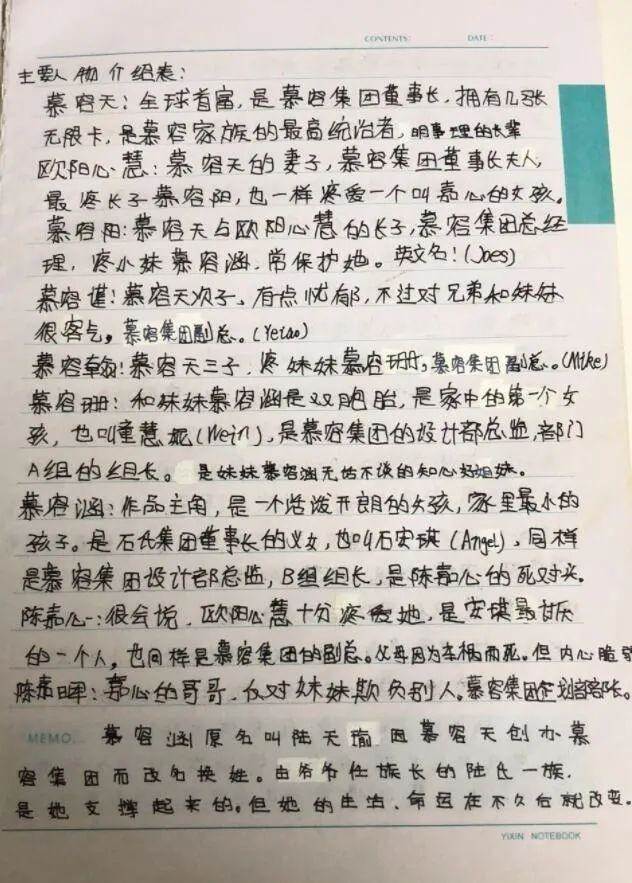 CONTENTS: DATE:
主要人物介绍表:
慕容天:全球首富,是慕容集团董事长,拥有几张
无限卡,是慕容家族的最高统治者,明事理的长辈
欧阳心慧:慕容天的妻子,慕容集团董事长夫人,
最疼长子慕容阳,也一样疼爱一个叫嘉心的女孩。
慕容阳:慕容天与欧阳心慧的长子,慕容集团总经
理,疼小妹慕容涵,常保护她。英文名:(Joes)
慕容:慕容天次子,有点忧郁,不过对兄弟和妹妹
很客气。慕容集团副总。(Yetao)
慕容翰:慕容天三子,疼妹妹慕容珊,慕容集团副总。(Mike)
慕容珊:和妹妹慕容涵是双胞胎,是家中的第一个女
孩,也叫童慧妮(Wein),是慕容集团的设计部总监,部门
A组的组长。是妹妹慕容涵无话不谈的知心好姐妹。
慕容涵:作品主角,是一个活泼开朗的女孩,家里最小的
孩子。是石氏集团董事长的义女,也叫石安琪(Angel),同样
是慕容集团设计部总监,B组组长,是陈嘉心的死对头。
陈嘉心:很会说,欧阳心慧十分疼爱她,是安琪最讨厌
的一个人,也同样是慕容集团的副总。父母因为车祸而死。但内心脆
陈嘉晖:嘉心的哥哥,仅对妹妹欺负别人。慕容集团企划部部长。
MEMO. 慕容涵原名叫陆天瑜,因慕容天创办慕
容集团而改名换姓。由爷爷任族长的陆氏一族,
是她支撑起来的。但她的生活、命运在不久后就改变。
YIXIN NOTEBOOK